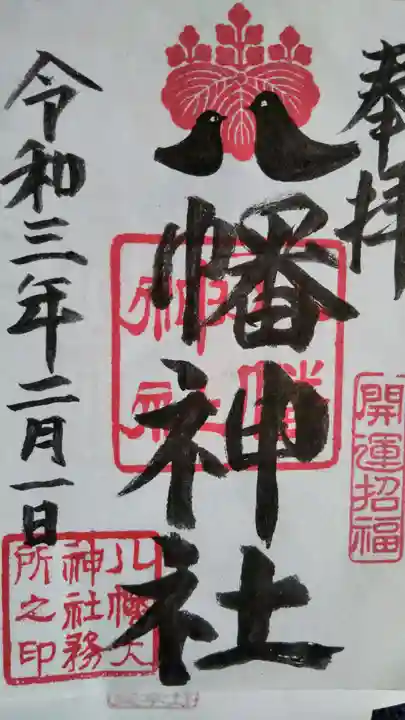 奉拝
開運招福
八幡神社
八幡大
神社務
所之印
令和三年二月一日